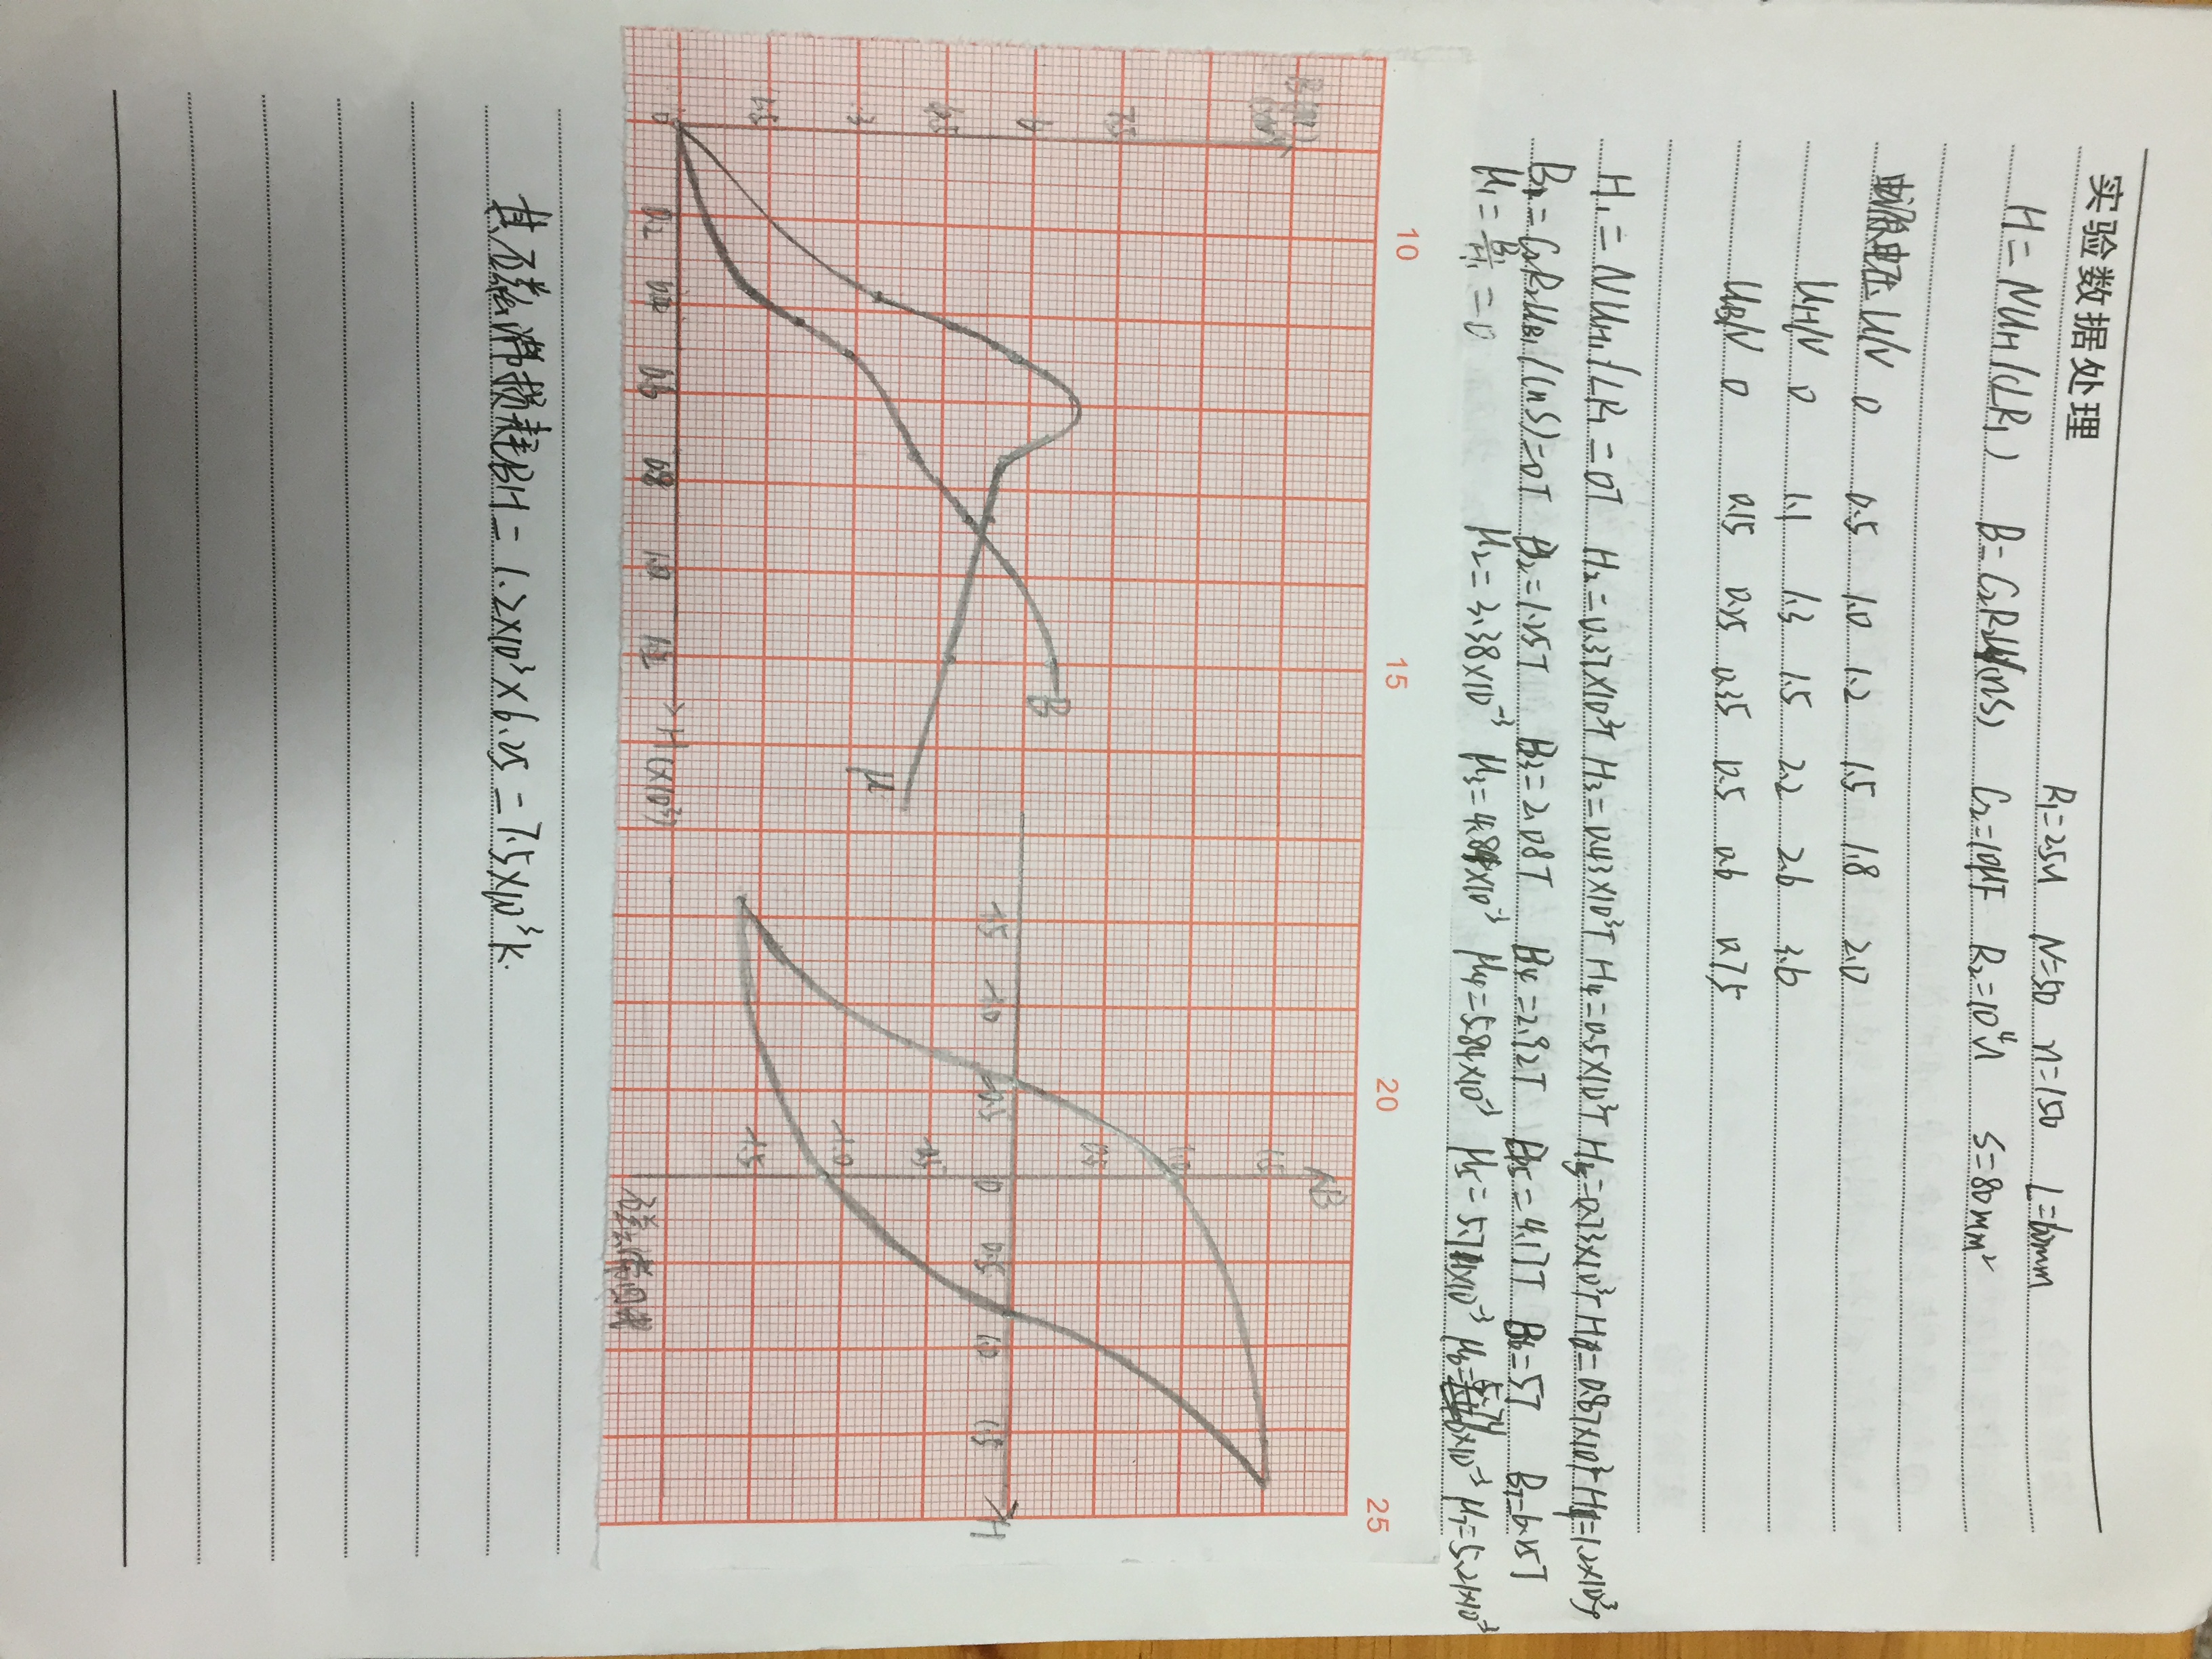 实验数据处理
R₁=2.5Ω N=50 n=150 L=60mm
H=NU_H/(LR₁) B=C₂R₂U_B/(nS) C₂=10μF R₂=10⁴Ω S=80mm²
电源电压U/V 0 0.5 1.0 1.2 1.5 1.8 2.0
U_H/V 0 1.1 1.3 1.5 2.2 2.6 3.6
U_B/V 0 0.15 0.25 0.35 0.5 0.6 0.75
H₁=NU_H₁/LR₁=0T H₂=0.37×10³T H₃=0.43×10³T H₄=0.5×10³T H₅=0.73×10³T H₆=0.87×10³T H₇=1.2×10³T
B₁=C₂R₂U_B₁/(nS)=0T B₂=1.25T B₃=2.08T B₄=2.92T B₅=4.17T B₆=5T B₇=6.25T
μ₁=B₁/H₁=0 μ₂=3.38×10⁻³ μ₃=4.84×10⁻³ μ₄=5.84×10⁻³ μ₅=5.71×10⁻³ μ₆=5.74×10⁻³ μ₇=5.21×10⁻³
10
15
20
25
0 0.2 0.4 0.6 0.8 1.0 1.2 H(×10³)
B
μ
B
1.5
1.0
0.5
-1.5 -1.0 -0.5 0 0.5 1.0 1.5 H
-0.5
-1.0
-1.5
磁滞回线
其磁滞损耗BH=1.2×10³×6.25=7.5×10³k.